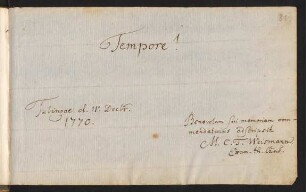 Tempore!
Tubingae. d. 18. Decbr.
1770.
Benevolam sui memoriam com-
mendaturus adscripsit
M. C. F. Weismann